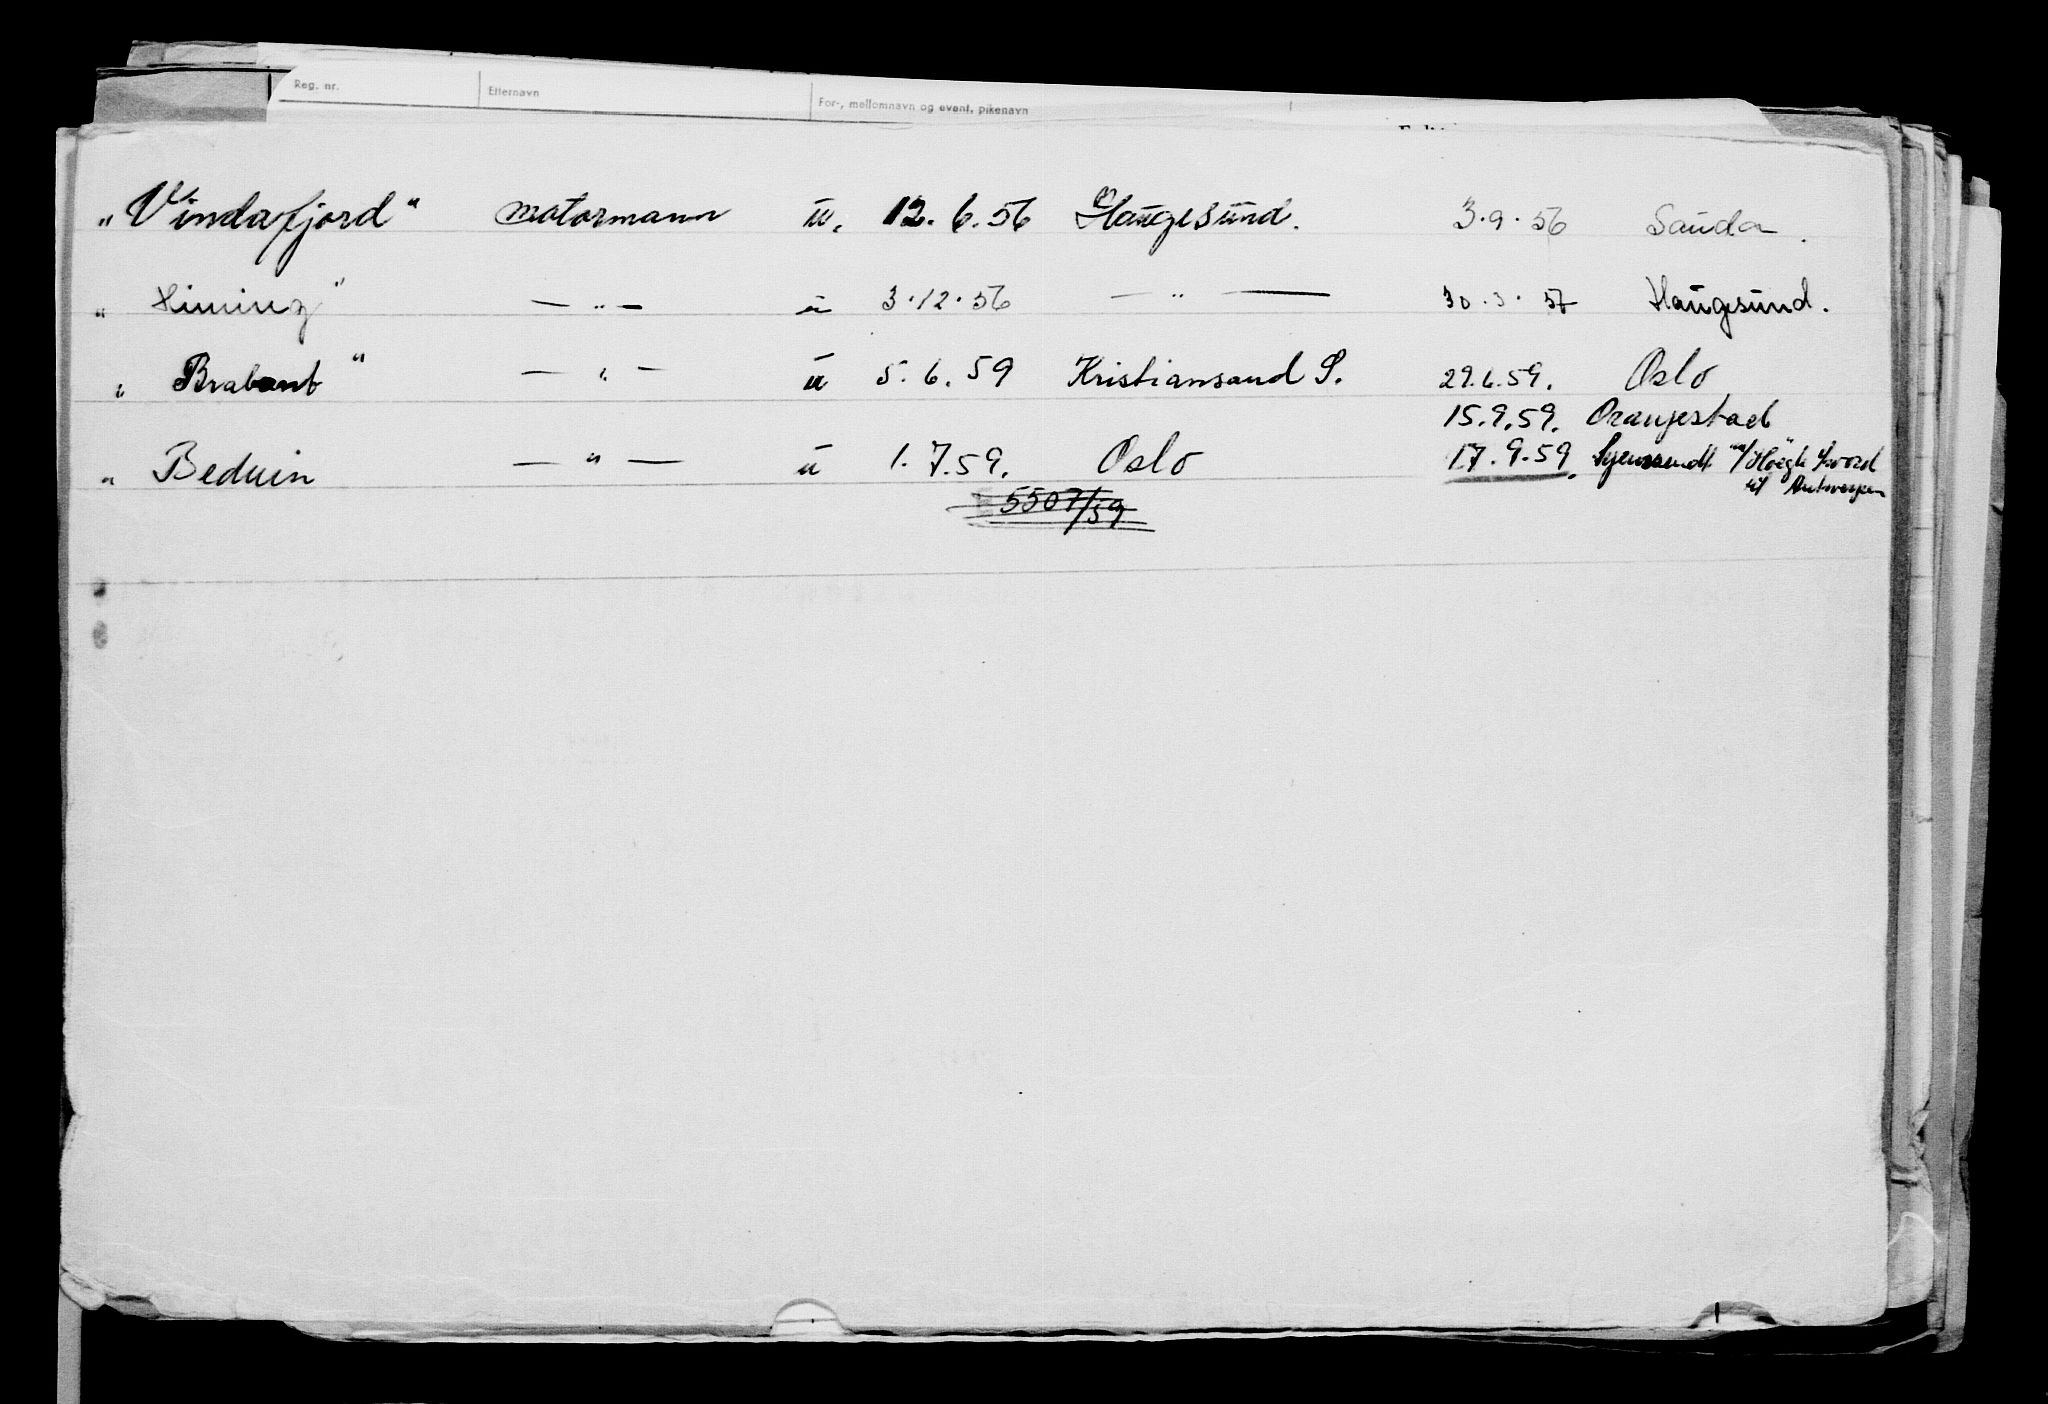 Reg. nr. Etternavn For-, mellomnavn og event. pikenavn
"Vindafjord" motormann u. 12.6.56 Haugesund. 3.9.56 Sauda.
" Himing" — " — u 3.12.56 — " — 30.3.57 Haugesund.
" Brabant" — " — u 5.6.59 Kristiansand S. 29.6.59. Oslo
15.9.59. Oranjestad
" Beduin — " — u 1.7.59. Oslo 17.9.59. hjemsendt m/Höegh Sword
til Antwerpen
5507/59